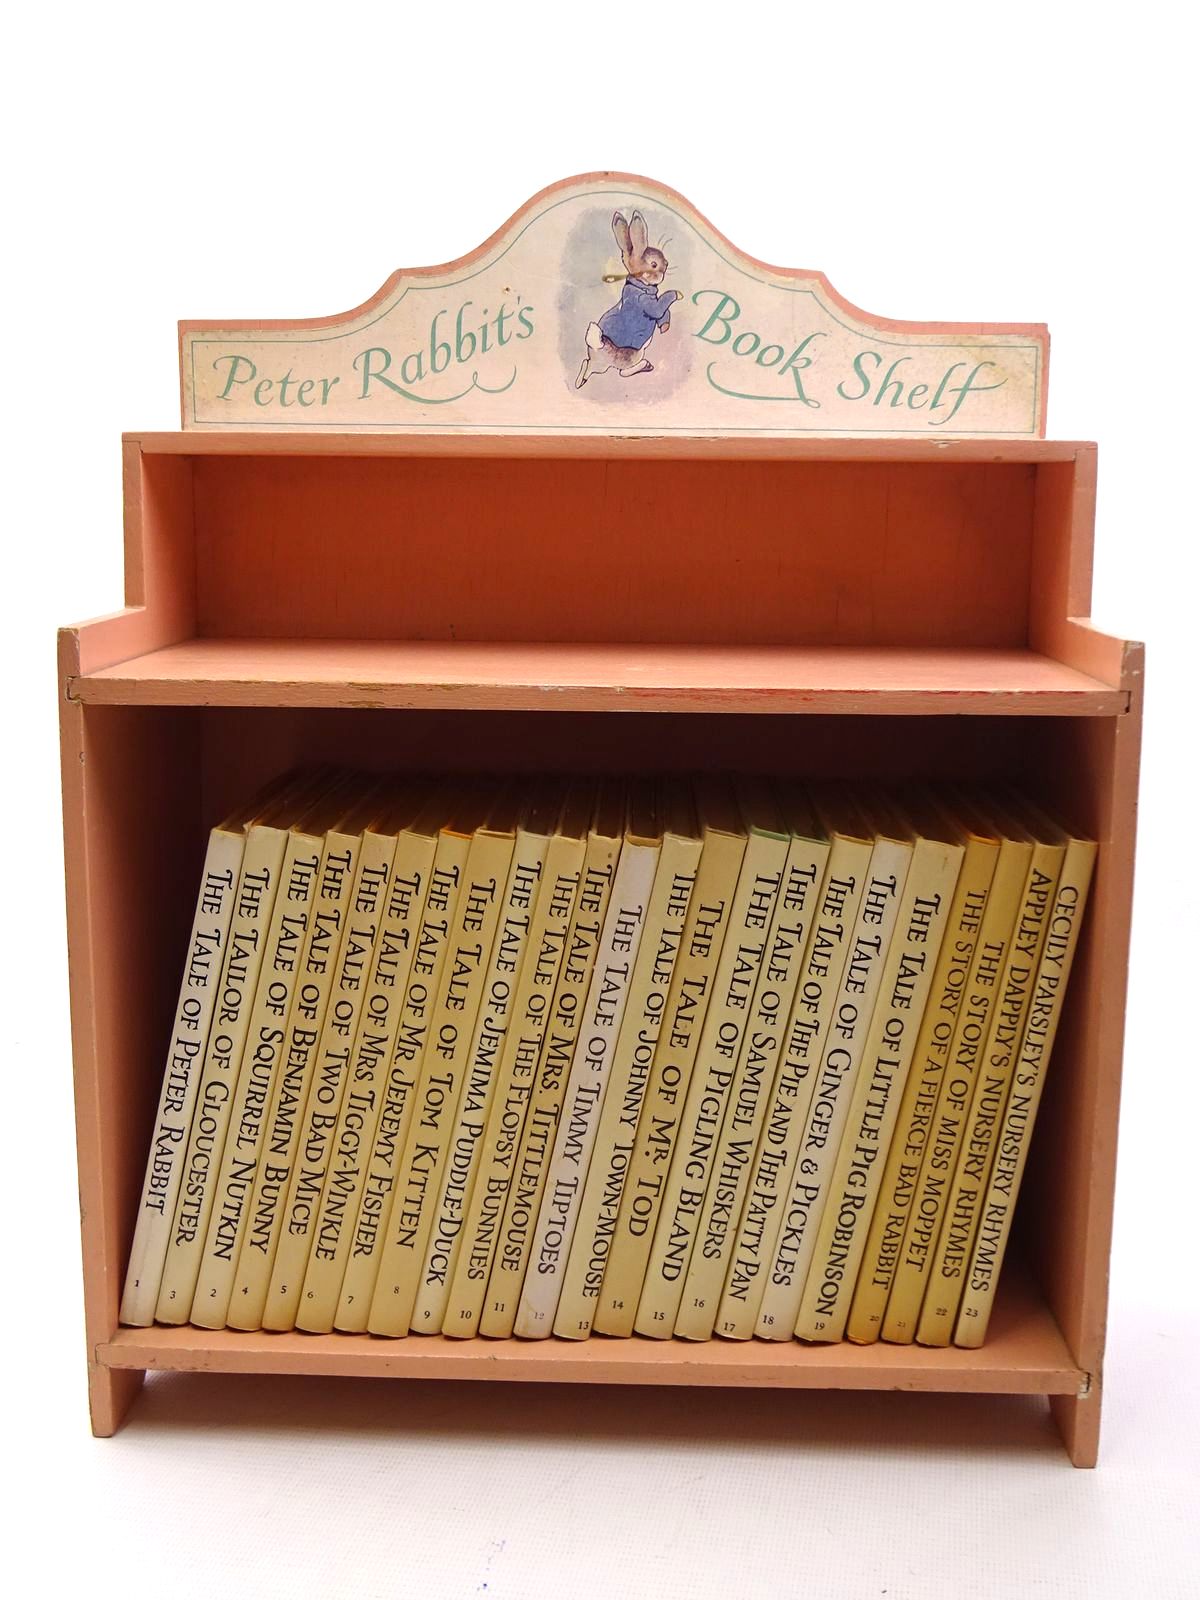 Peter Rabbit's Book Shelf
THE TALE OF PETER RABBIT
1
THE TAILOR OF GLOUCESTER
3
THE TALE OF SQUIRREL NUTKIN
2
THE TALE OF BENJAMIN BUNNY
4
THE TALE OF TWO BAD MICE
5
THE TALE OF MRS. TIGGY-WINKLE
6
THE TALE OF MR. JEREMY FISHER
7
THE TALE OF TOM KITTEN
8
THE TALE OF JEMIMA PUDDLE-DUCK
9
THE TALE OF THE FLOPSY BUNNIES
10
THE TALE OF MRS. TITTLEMOUSE
11
THE TALE OF TIMMY TIPTOES
12
THE TALE OF JOHNNY TOWN-MOUSE
13
THE TALE OF MR. TOD
14
THE TALE OF PIGLING BLAND
15
THE TALE OF SAMUEL WHISKERS
16
THE TALE OF THE PIE AND THE PATTY PAN
17
THE TALE OF GINGER & PICKLES
18
THE TALE OF LITTLE PIG ROBINSON
19
THE STORY OF A FIERCE BAD RABBIT
20
THE STORY OF MISS MOPPET
21
APPLEY DAPPLY'S NURSERY RHYMES
22
CECILY PARSLEY'S NURSERY RHYMES
23